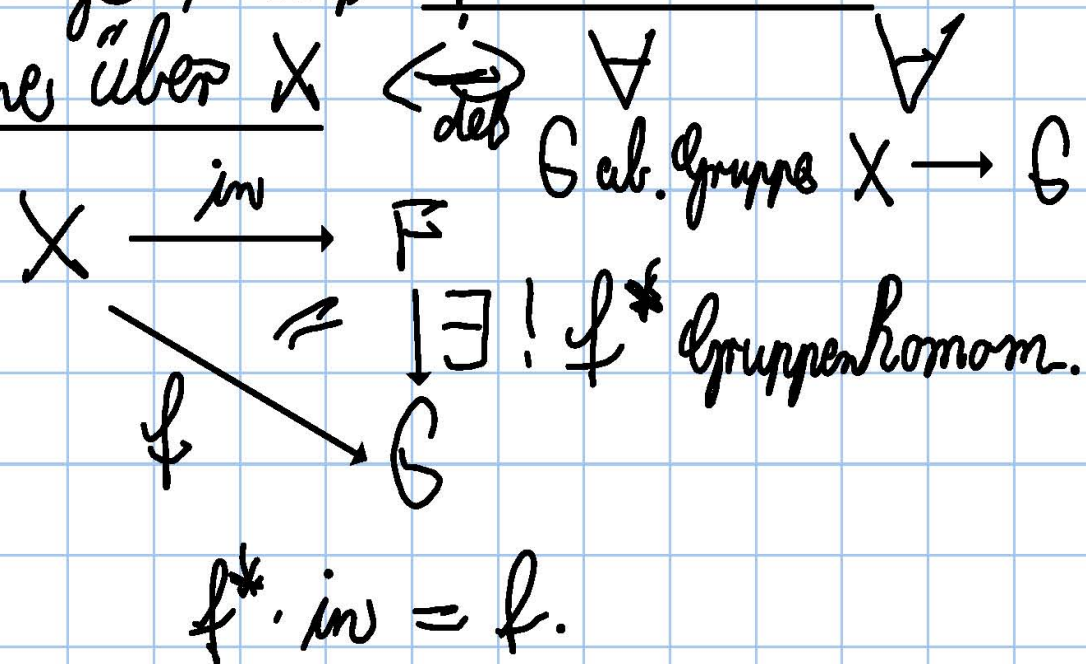 über X ⟺ ∀ ∀
def G ab. Gruppe X → G
in
X → F
= ↓ ∃! f* Gruppenhomom.
f
G
f* · in = f.